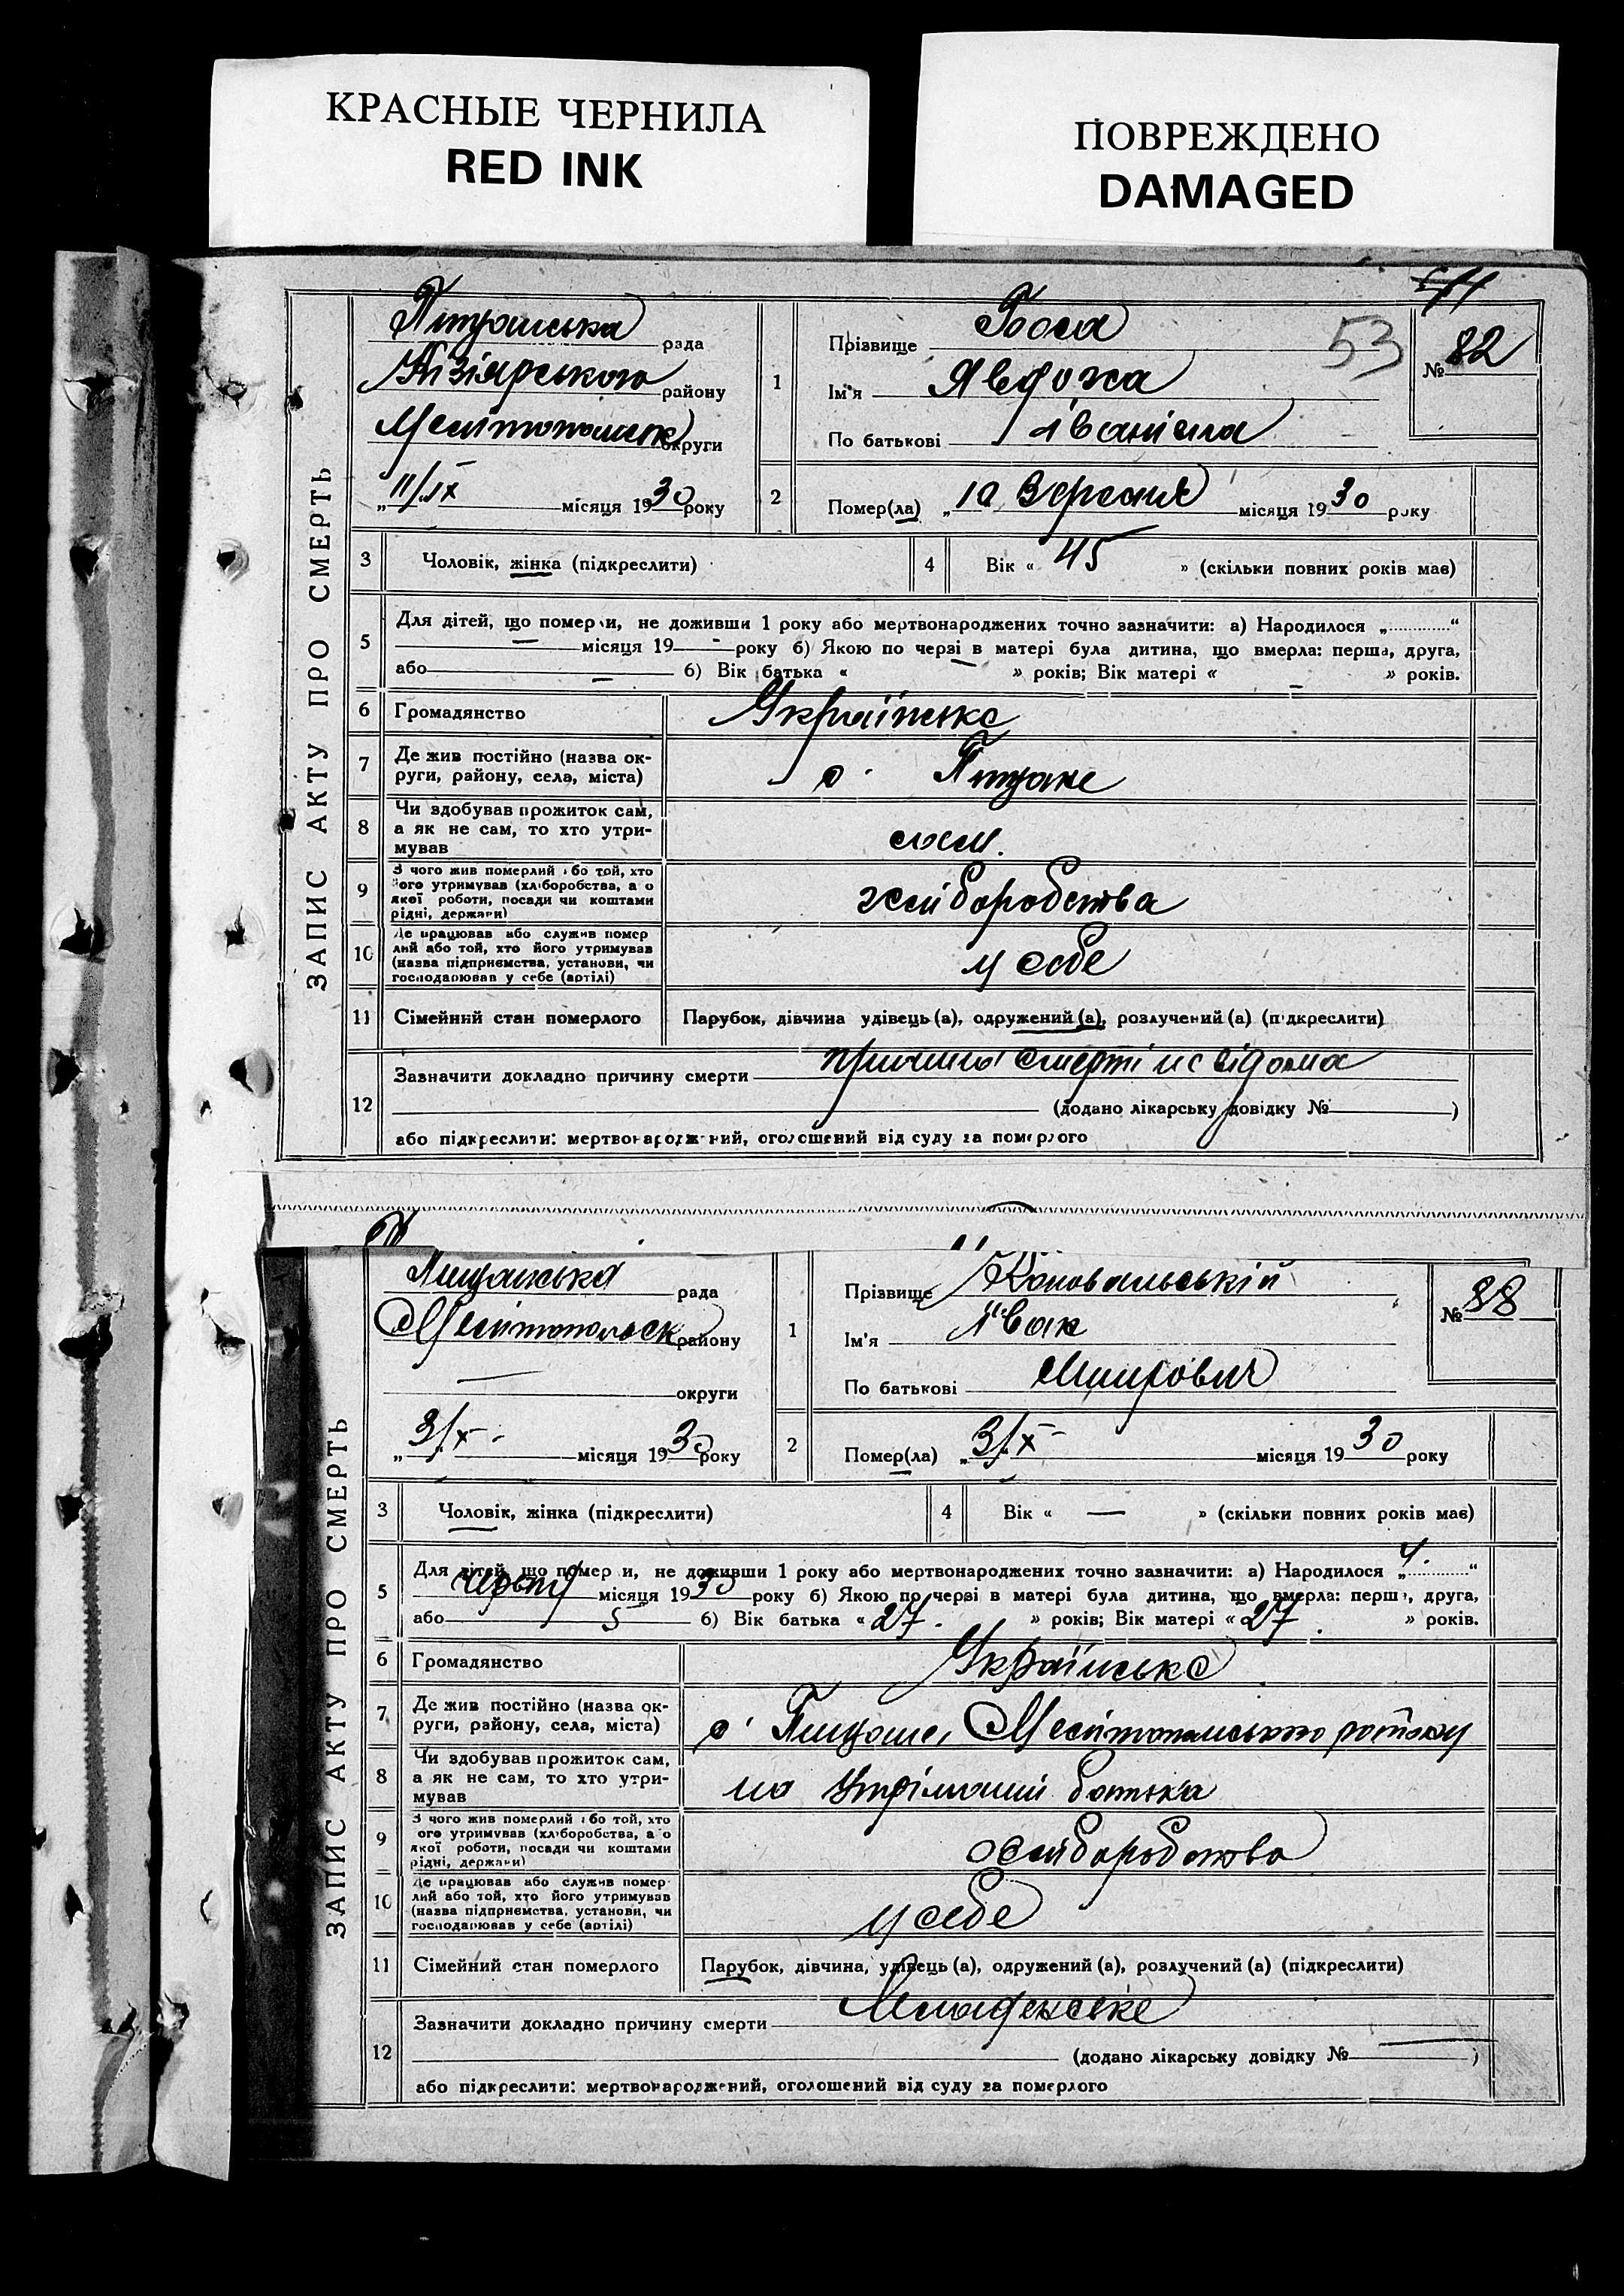 КРАСНЫЕ ЧЕРНИЛА
RED INK
ПОВРЕЖДЕНО
DAMAGED
ЗАПИС АКТУ ПРО СМЕРТЬ
рада
району
Мелітопольськ округи
„11/IX місяця 1930 року
53
1
Прізвище
Ім'я Явдоха
По батькові Іванівна
№ 82
2
Помер(ла) „10 Вересня місяця 1930 року
3
Чоловік, жінка (підкреслити)
4
Вік « 45 » (скільки повних років має)
5
Для дітей, що померли, не доживши 1 року або мертвонароджених точно зазначити: а) Народилося „ — “
— місяця 19 — року б) Якою по черзі в матері була дитина, що вмерла: перша, друга,
або — б) Вік батька « — » років; Вік матері « — » років.
6
Громадянство
Українське
7
Де жив постійно (назва ок-
руги, району, села, міста)
с. Піщане
8
Чи здобував прожиток сам,
а як не сам, то хто утри-
мував
сам.
9
З чого жив померлий або той, хто
його утримував (хліборобства, а о
якої роботи, посади чи коштами
рідні, держави)
хліборобства
10
Де працював або служив помер
лий або той, хто його утримував
(назва підприємства, установи, чи
господарював у себе (артілі)
у себе
11
Сімейний стан померлого
Парубок, дівчина удівець (а), одружений (а), розлучений (а) (підкреслити)
12
Зазначити докладно причину смерти причина смерті не відома
(додано лікарську довідку № )
або підкреслити: мертвонароджений, оголошений від суду за померлого
ЗАПИС АКТУ ПРО СМЕРТЬ
Піщанська рада
Мелітопольськ району
— округи
„3/X - місяця 1930 року
1
Прізвище Коновальський
Ім'я Іван
По батькові
№ 88
2
Помер(ла) „3/X - місяця 1930 року
3
Чоловік, жінка (підкреслити)
4
Вік « — » (скільки повних років має)
5
Для дітей, що помер и, не доживши 1 року або мертвонароджених точно зазначити: а) Народилося „4.“
червня місяця 1930 року б) Якою по черзі в матері була дитина, що вмерла: перша, друга,
або 5 б) Вік батька « 27. » років; Вік матері « 27. » років.
6
Громадянство
Українське
7
Де жив постійно (назва ок-
руги, району, села, міста)
с. Піщане, Мелітопольського району
8
Чи здобував прожиток сам,
а як не сам, то хто утри-
мував
на утріманні батька
9
З чого жив померлий або той, хто
ого утримував (хліборобства, а о
якої роботи, посади чи коштами
рідні, держави)
хліборобство
10
Де працював або служив помер
лий або той, хто його утримував
(назва підприємства, установи, чи
господарював у себе (артілі)
у себе
11
Сімейний стан померлого
Парубок, дівчина, удівець (а), одружений (а), розлучений (а) (підкреслити)
12
Зазначити докладно причину смерти Младенське
(додано лікарську довідку № — )
або підкреслити: мертвонароджений, оголошений від суду за померлого